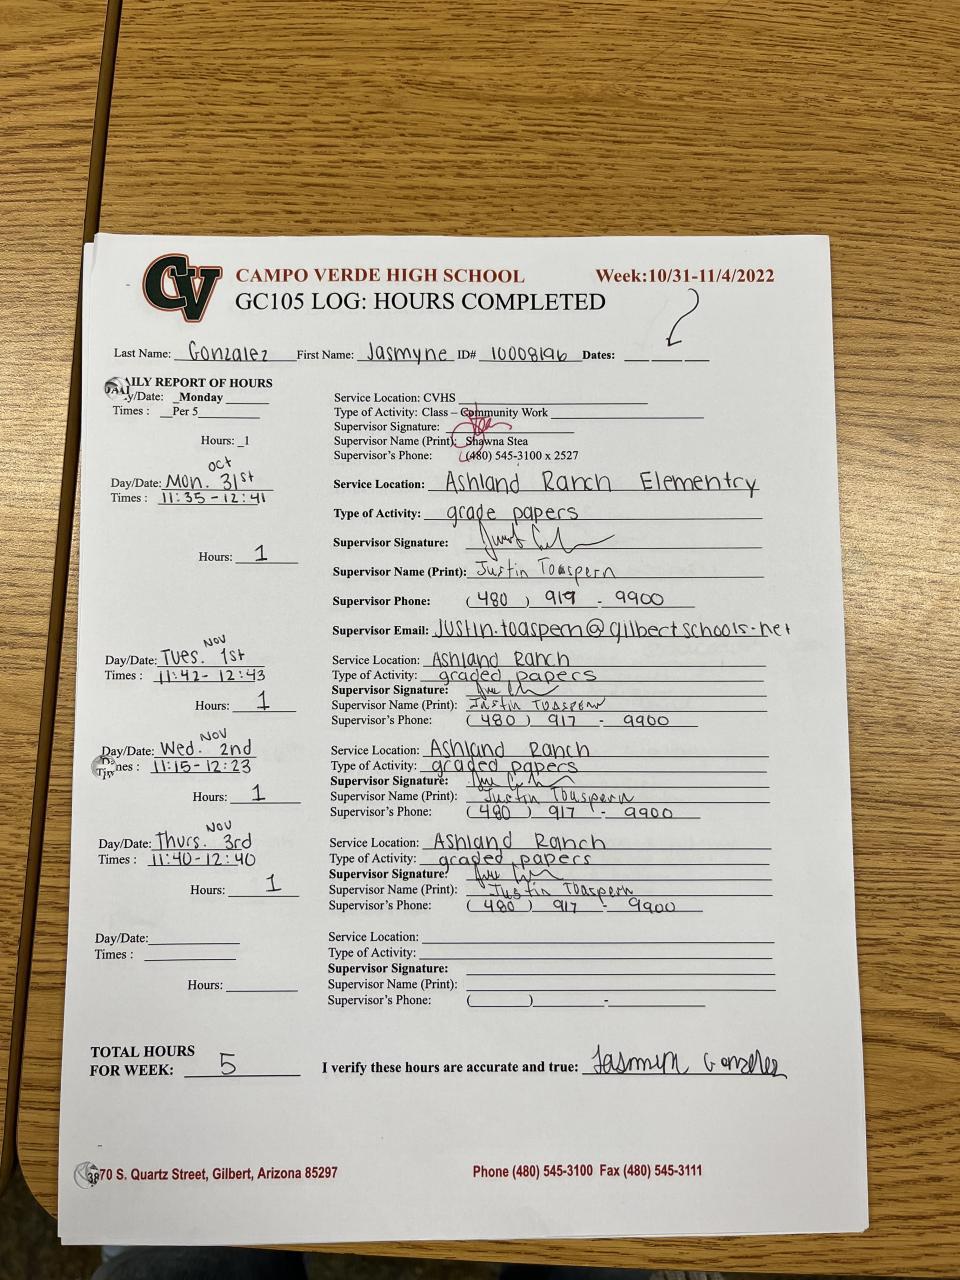 CV CAMPO VERDE HIGH SCHOOL Week:10/31-11/4/2022
GC105 LOG: HOURS COMPLETED
Last Name: Gonzalez First Name: Jasmyne ID# 10008196 Dates: ___ ___ ___
ILY REPORT OF HOURS
y/Date: Monday Service Location: CVHS
Times : Per 5 Type of Activity: Class – Community Work
Supervisor Signature:
Hours: 1 Supervisor Name (Print): Shawna Stea
Supervisor's Phone: (480) 545-3100 x 2527
Oct
Day/Date: Mon. 31st Service Location: Ashland Ranch Elementry
Times : 11:35-12:41
Type of Activity: grade papers
Supervisor Signature:
Hours: 1
Supervisor Name (Print): Justin Toaspern
Supervisor Phone: (480) 919 - 9900
Supervisor Email: justin.toaspern@gilbertschools.net
Nov
Day/Date: Tues. 1st Service Location: Ashland Ranch
Times : 11:42-12:43 Type of Activity: graded papers
Supervisor Signature:
Hours: 1 Supervisor Name (Print): Justin Toaspern
Supervisor's Phone: (480) 917 - 9900
Nov
Day/Date: Wed. 2nd Service Location: Ashland Ranch
nes : 11:15-12:23 Type of Activity: graded papers
Supervisor Signature:
Hours: 1 Supervisor Name (Print): Justin Toaspern
Supervisor's Phone: (480) 917 - 9900
Nov
Day/Date: Thurs. 3rd Service Location: Ashland Ranch
Times : 11:40-12:40 Type of Activity: graded papers
Supervisor Signature:
Hours: 1 Supervisor Name (Print): Justin Toaspern
Supervisor's Phone: (480) 917 - 9900
Day/Date: Service Location:
Times : Type of Activity:
Supervisor Signature:
Hours: Supervisor Name (Print):
Supervisor's Phone: ( ) -
TOTAL HOURS
FOR WEEK: 5 I verify these hours are accurate and true: Jasmyn Gonzalez
3870 S. Quartz Street, Gilbert, Arizona 85297 Phone (480) 545-3100 Fax (480) 545-3111